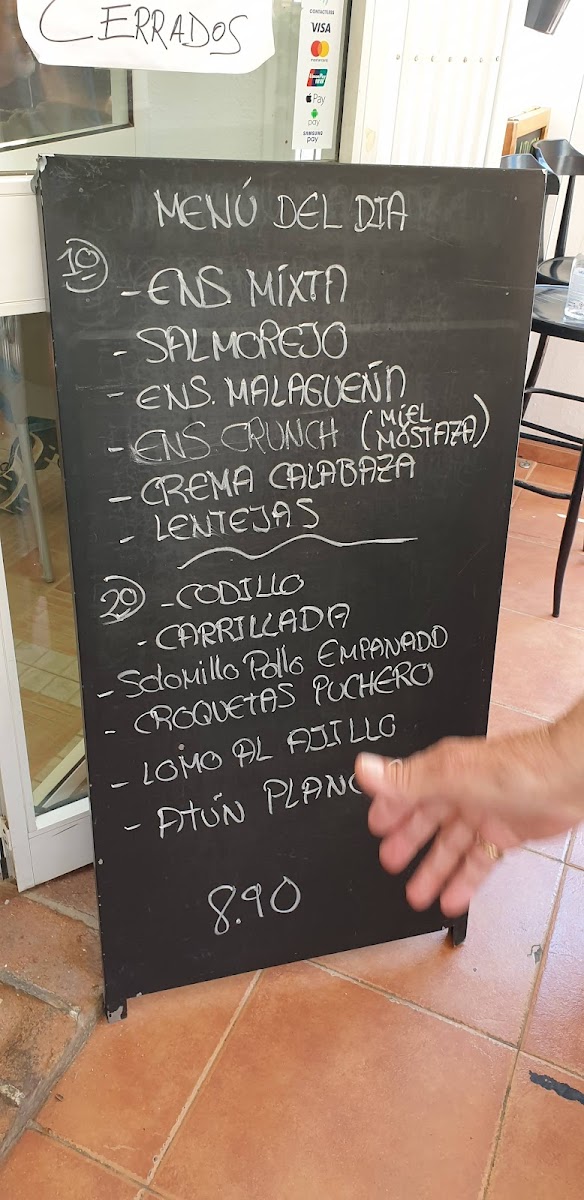 CERRADOS
CONTACTLESS
VISA
Pay
pay
SAMSUNG
pay
MENÚ DEL DIA
10 - ENS. MIXTA
- SALMOREJO
- ENS. MALAGUEÑA
- ENS CRUNCH (MIEL MOSTAZA)
- CREMA CALABAZA
- LENTEJAS
20 - CODILLO
- CARRILLADA
- Solomillo Pollo EMPANADO
- CROQUETAS PUCHERO
- LOMO AL AJILLO
- ATÚN
8.90